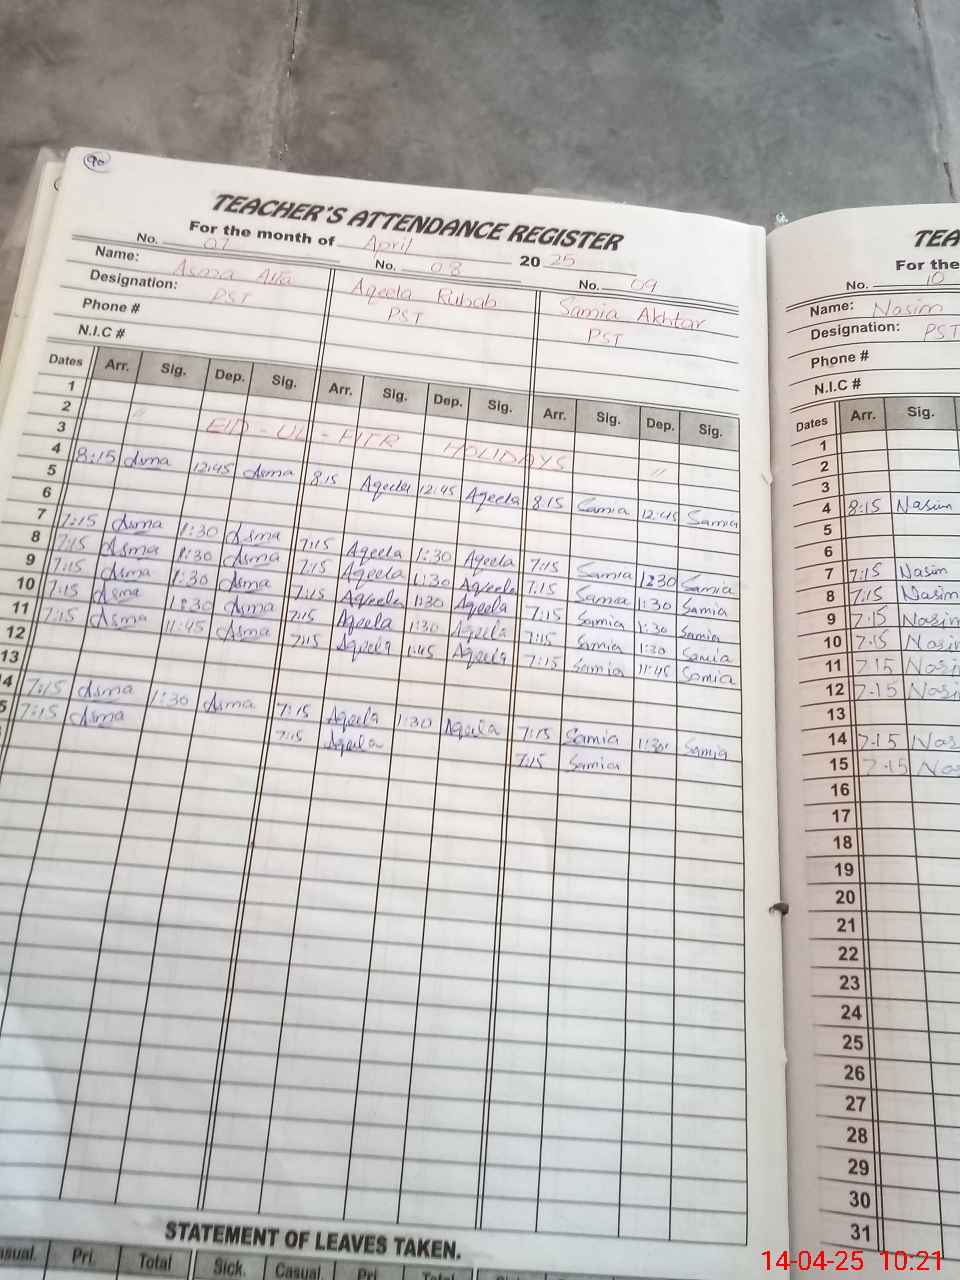 90
TEACHER'S ATTENDANCE REGISTER
For the month of April 2025
No. 07 No. 08 No. 09
Name: Asma Aqeela Rubab Samia Akhtar
Designation: PST PST PST
Phone #
N.I.C #
Dates Arr. Sig. Dep. Sig. Arr. Sig. Dep. Sig. Arr. Sig. Dep. Sig.
1
2 " EID-UL-FITR HOLIDAYS "
3
4 8:15 Asma 12:45 Asma 8:15 Aqeela 12:45 Aqeela 8:15 Samia 12:45 Samia
5
6
7 7:15 Asma 1:30 Asma 7:15 Aqeela 1:30 Aqeela 7:15 Samia 1:30 Samia
8 7:15 Asma 1:30 Asma 7:15 Aqeela 1:30 Aqeela 7:15 Samia 1:30 Samia
9 7:15 Asma 1:30 Asma 7:15 Aqeela 1:30 Aqeela 7:15 Samia 1:30 Samia
10 7:15 Asma 1:30 Asma 7:15 Aqeela 1:30 Aqeela 7:15 Samia 1:30 Samia
11 7:15 Asma 11:45 Asma 7:15 Aqeela 1:45 Aqeela 7:15 Samia 11:45 Samia
12
13
4 7:15 Asma 1:30 Asma 7:15 Aqeela 1:30 Aqeela 7:15 Samia 1:30 Samia
5 7:15 Asma 7:15 Aqeela 7:15 Samia
STATEMENT OF LEAVES TAKEN.
asual. Pri. Total Sick. Casual. Pri. Total
TEA
For the
No. 10
Name: Nasim
Designation: PST
Phone #
N.I.C #
Dates Arr. Sig.
1
2
3
4 8:15 Nasim
5
6
7 7:15 Nasim
8 7:15 Nasim
9 7:15 Nasim
10 7:15 Nasi
11 7:15 Nasi
12 7:15 Nasi
13
14 7:15 Nas
15 7:15 Nas
16
17
18
19
20
21
22
23
24
25
26
27
28
29
30
31
14-04-25 10:21